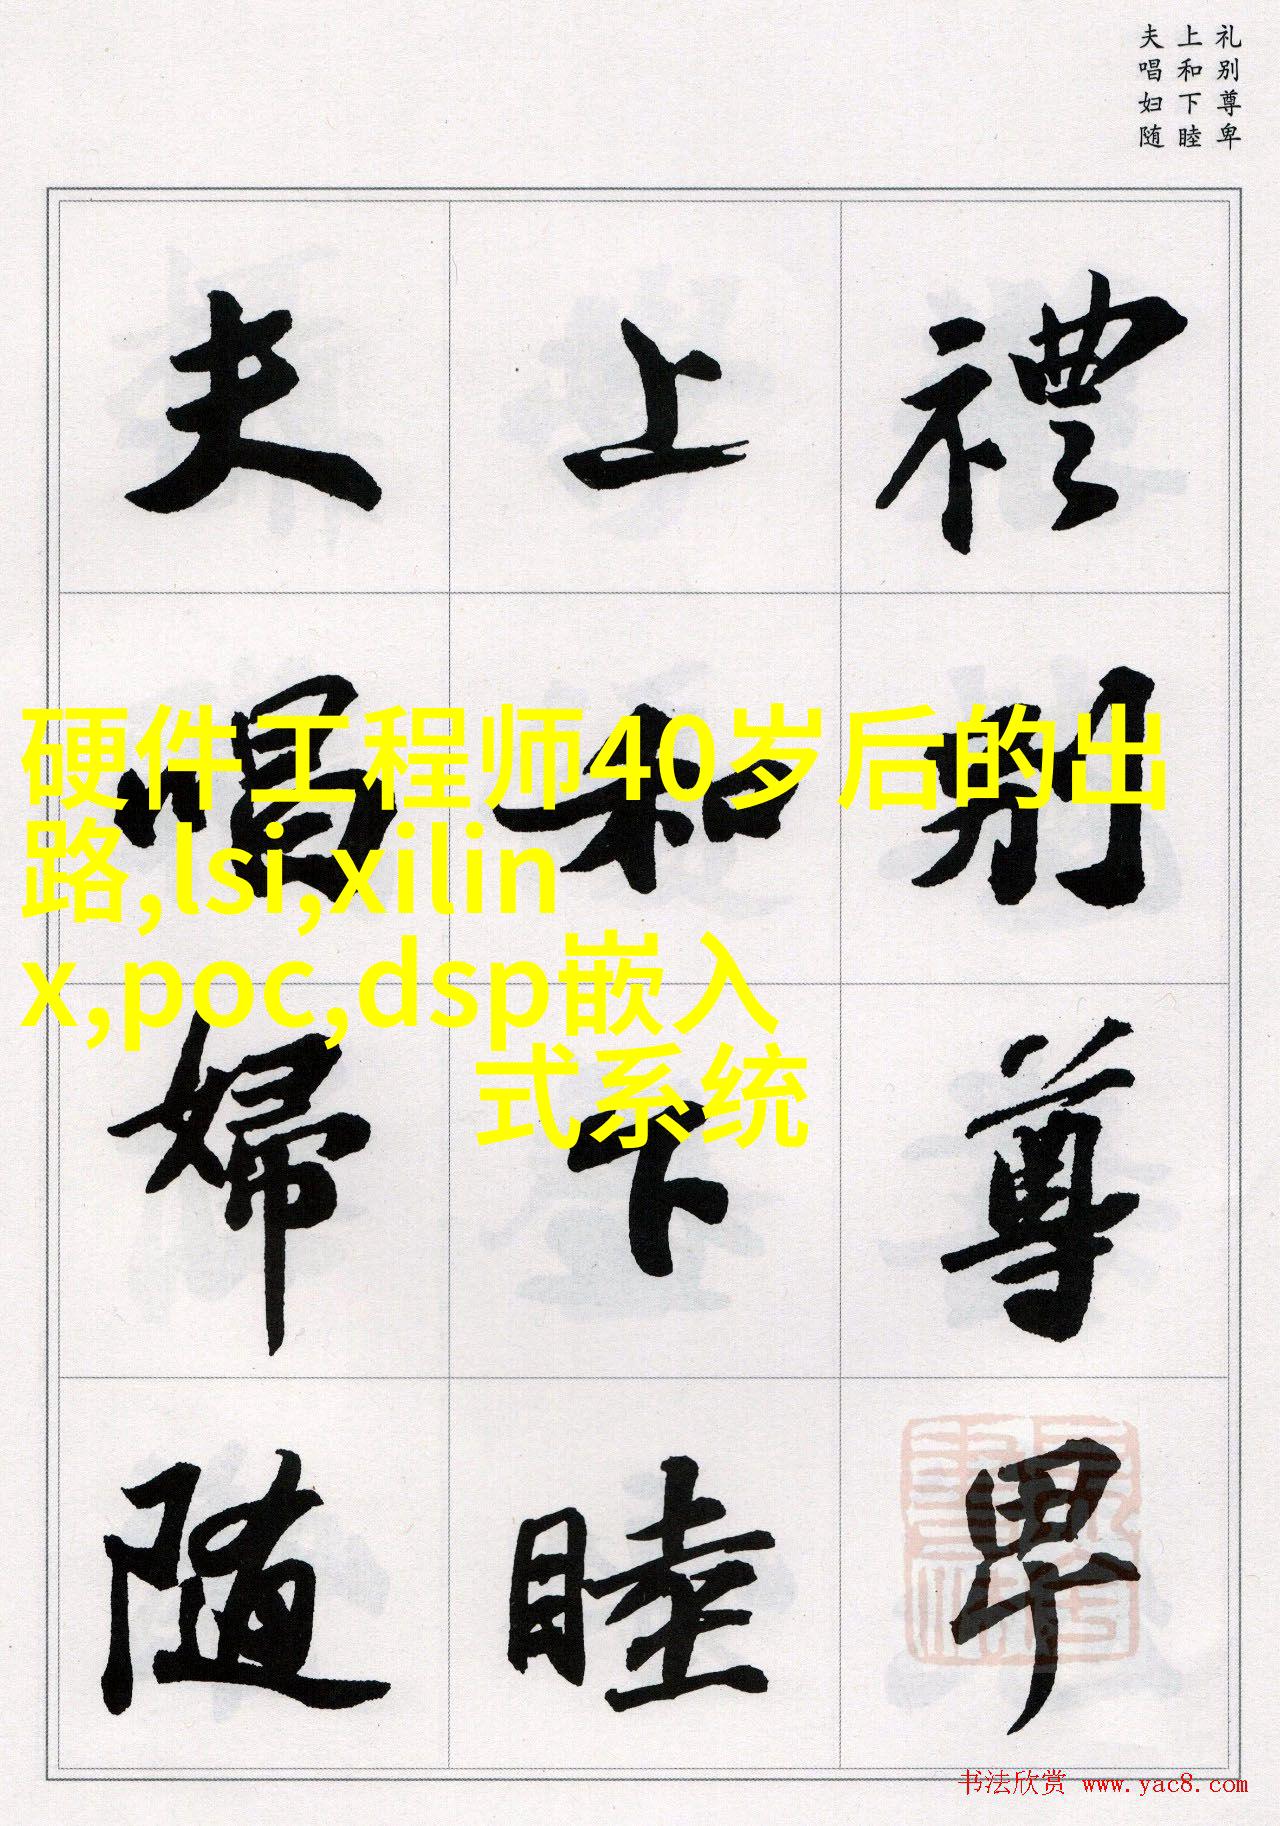 礼别尊卑
上和下睦
夫唱妇随
禮別尊卑
上和下睦
夫唱婦随
硬件工程师40岁后的出
路,lsi,xilin
x,poc,dsp嵌入
式系统
书法欣赏 www.yac8.com